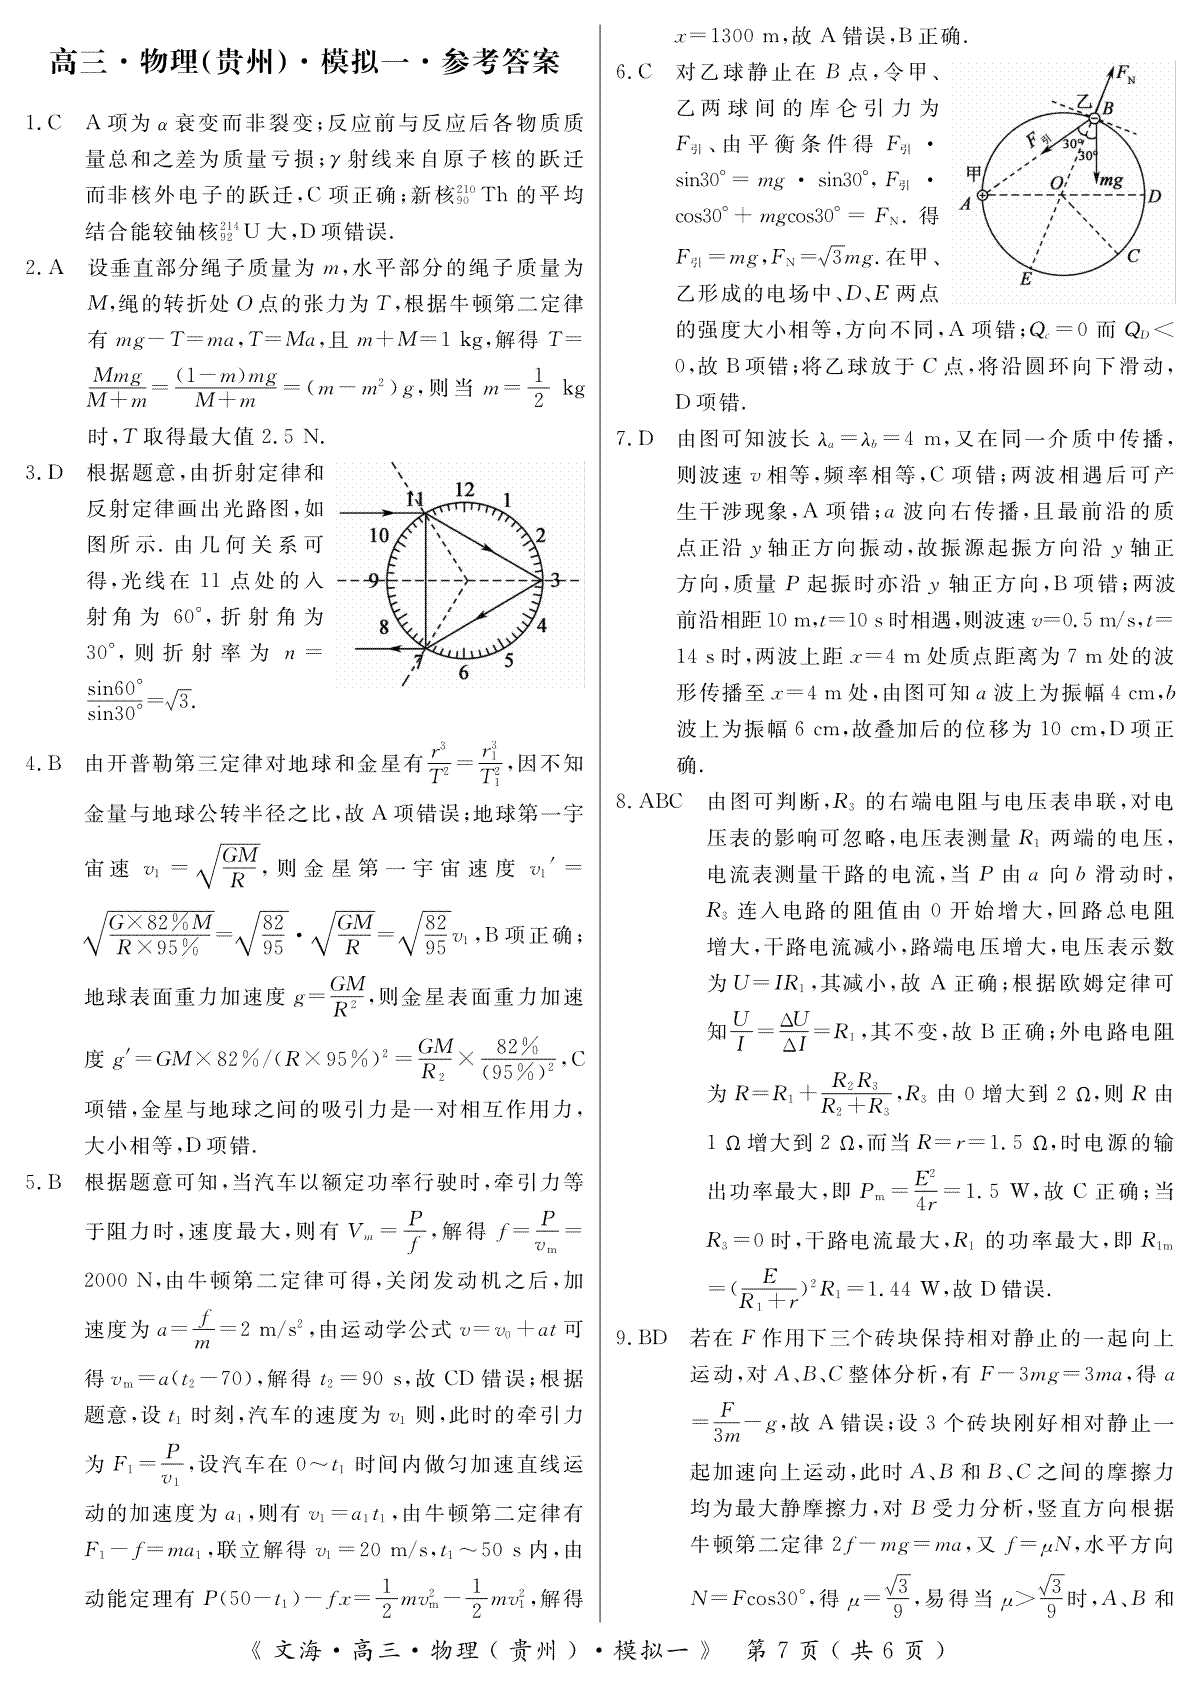 高三·物理(贵州)·模拟一·参考答案
1.C A项为α衰变而非裂变;反应前与反应后各物质质
量总和之差为质量亏损;γ射线来自原子核的跃迁
而非核外电子的跃迁,C项正确;新核²¹⁰₉₀Th的平均
结合能较铀核²¹⁴₉₂U大,D项错误.
2.A 设垂直部分绳子质量为m,水平部分的绳子质量为
M,绳的转折处O点的张力为T,根据牛顿第二定律
有mg-T=ma,T=Ma,且m+M=1 kg,解得T=
Mmg/(M+m)=(1-m)mg/(M+m)=(m-m²)g,则当m=1/2 kg
时,T取得最大值2.5 N.
3.D 根据题意,由折射定律和
反射定律画出光路图,如
图所示.由几何关系可
得,光线在11点处的入
射角为60°,折射角为
30°,则折射率为n=
sin60°/sin30°=√3.
12
11 1
10 2
9 3
8 4
7 5
6
4.B 由开普勒第三定律对地球和金星有r³/T²=r₁³/T₁²,因不知
金量与地球公转半径之比,故A项错误;地球第一宇
宙速v₁=√(GM/R),则金星第一宇宙速度v₁′=
√(G×82%M/(R×95%))=√(82/95)·√(GM/R)=√(82/95)v₁,B项正确;
地球表面重力加速度g=GM/R²,则金星表面重力加速
度g′=GM×82%/(R×95%)²=GM/R₂×82%/(95%)²,C
项错,金星与地球之间的吸引力是一对相互作用力,
大小相等,D项错.
5.B 根据题意可知,当汽车以额定功率行驶时,牵引力等
于阻力时,速度最大,则有Vₘ=P/f,解得f=P/vₘ=
2000 N,由牛顿第二定律可得,关闭发动机之后,加
速度为a=f/m=2 m/s²,由运动学公式v=v₀+at可
得vₘ=a(t₂-70),解得t₂=90 s,故CD错误;根据
题意,设t₁时刻,汽车的速度为v₁则,此时的牵引力
为F₁=P/v₁,设汽车在0~t₁时间内做匀加速直线运
动的加速度为a₁,则有v₁=a₁t₁,由牛顿第二定律有
F₁-f=ma₁,联立解得v₁=20 m/s,t₁~50 s内,由
动能定理有P(50-t₁)-fx=1/2mvₘ²-1/2mv₁²,解得
x=1300 m,故A错误,B正确.
6.C 对乙球静止在B点,令甲、
乙两球间的库仑引力为
F引、由平衡条件得F引·
sin30°=mg·sin30°,F引·
cos30°+mgcos30°=F_N.得
F引=mg,F_N=√3mg.在甲、
乙形成的电场中、D、E两点
的强度大小相等,方向不同,A项错;Q_c=0而Q_D<
0,故B项错;将乙球放于C点,将沿圆环向下滑动,
D项错.
F_N
乙 B
F引 30°
30°
甲 O mg
A D
C
E
7.D 由图可知波长λₐ=λ_b=4 m,又在同一介质中传播,
则波速v相等,频率相等,C项错;两波相遇后可产
生干涉现象,A项错;a波向右传播,且最前沿的质
点正沿y轴正方向振动,故振源起振方向沿y轴正
方向,质量P起振时亦沿y轴正方向,B项错;两波
前沿相距10 m,t=10 s时相遇,则波速v=0.5 m/s,t=
14 s时,两波上距x=4 m处质点距离为7 m处的波
形传播至x=4 m处,由图可知a波上为振幅4 cm,b
波上为振幅6 cm,故叠加后的位移为10 cm,D项正
确.
8.ABC 由图可判断,R₃的右端电阻与电压表串联,对电
压表的影响可忽略,电压表测量R₁两端的电压,
电流表测量干路的电流,当P由a向b滑动时,
R₃连入电路的阻值由0开始增大,回路总电阻
增大,干路电流减小,路端电压增大,电压表示数
为U=IR₁,其减小,故A正确;根据欧姆定律可
知U/I=ΔU/ΔI=R₁,其不变,故B正确;外电路电阻
为R=R₁+R₂R₃/(R₂+R₃),R₃由0增大到2 Ω,则R由
1 Ω增大到2 Ω,而当R=r=1.5 Ω,时电源的输
出功率最大,即Pₘ=E²/4r=1.5 W,故C正确;当
R₃=0时,干路电流最大,R₁的功率最大,即R₁ₘ
=(E/(R₁+r))²R₁=1.44 W,故D错误.
9.BD 若在F作用下三个砖块保持相对静止的一起向上
运动,对A、B、C整体分析,有F-3mg=3ma,得a
=F/3m-g,故A错误;设3个砖块刚好相对静止一
起加速向上运动,此时A、B和B、C之间的摩擦力
均为最大静摩擦力,对B受力分析,竖直方向根据
牛顿第二定律2f-mg=ma,又f=μN,水平方向
N=Fcos30°,得μ=√3/9,易得当μ>√3/9时,A、B和
《文海·高三·物理(贵州)·模拟一》 第7页(共6页)